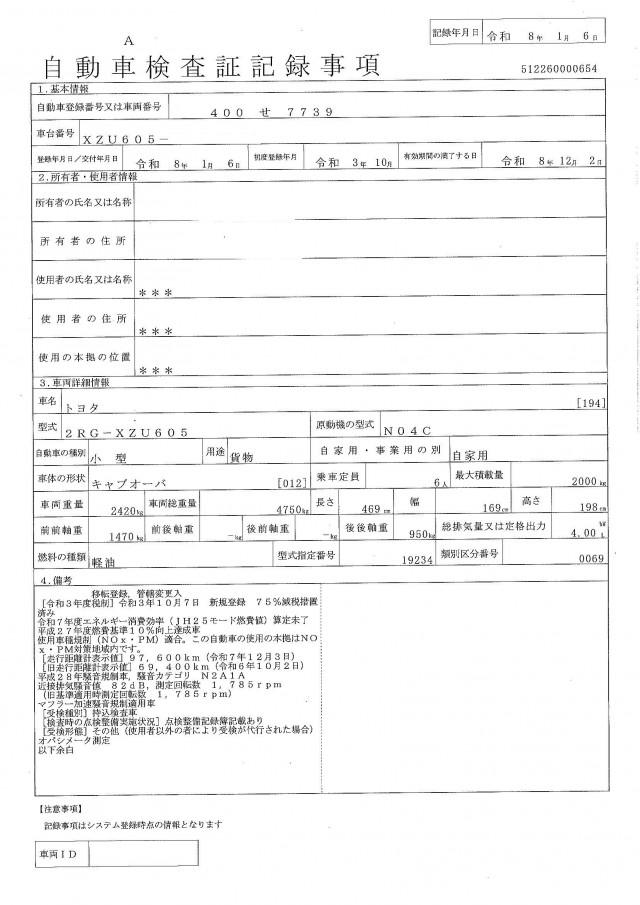 記録年月日 令和 8年 1月 6日
A
自動車検査証記録事項
512260000654
1.基本情報
自動車登録番号又は車両番号 400 せ 7739
車台番号 XZU605-
登録年月日/交付年月日 令和 8年 1月 6日 初度登録年月 令和 3年 10月 有効期間の満了する日 令和 8年 12月 2日
2.所有者・使用者情報
所有者の氏名又は名称
所有者の住所
使用者の氏名又は名称 ***
使用者の住所 ***
使用の本拠の位置 ***
3.車両詳細情報
車名 トヨタ [194]
型式 2RG-XZU605 原動機の型式 N04C
自動車の種別 小型 用途 貨物 自家用・事業用の別 自家用
車体の形状 キャブオーバ [012] 乗車定員 6人 最大積載量 2000kg
車両重量 2420kg 車両総重量 4750kg 長さ 469cm 幅 169cm 高さ 198cm
前前軸重 1470kg 前後軸重 -kg 後前軸重 -kg 後後軸重 950kg 総排気量又は定格出力 4.00 kW L
燃料の種類 軽油 型式指定番号 19234 類別区分番号 0069
4.備考
移転登録,管轄変更入
[令和3年度税制]令和3年10月7日 新規登録 75%減税措置
済み
令和7年度エネルギー消費効率(JH25モード燃費値)算定未了
平成27年度燃費基準10%向上達成車
使用車種規制(NOx・PM)適合。この自動車の使用の本拠はNO
x・PM対策地域内です。
[走行距離計表示値]97,600km(令和7年12月3日)
[旧走行距離計表示値]69,400km(令和6年10月2日)
平成28年騒音規制車,騒音カテゴリ N2A1A
近接排気騒音値 82dB,測定回転数 1,785rpm
(旧基準適用時測定回転数 1,785rpm)
マフラー加速騒音規制適用車
[受検種別]持込検査車
[検査時の点検整備実施状況]点検整備記録簿記載あり
[受検形態]その他(使用者以外の者により受検が代行された場合)
オパシメータ測定
以下余白
【注意事項】
記録事項はシステム登録時点の情報となります
車両ID